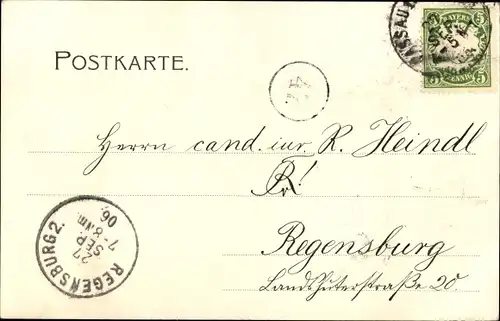 PASSAU
BAYERN
5 5
PFENNIG
5 5
POSTKARTE.
Herrn cand. iur. R. Heindl
Regensburg
Landshuterstraße 20.
REGENSBURG 2.
27
SEP.
7-8 Nm.
06.